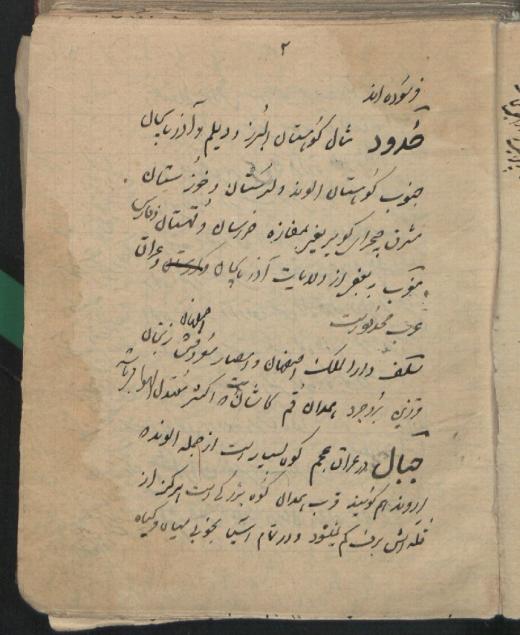 ۲
فرسوده اند
حُدود شمال کوهستان البُرز و دیلم و آذربایجان
جنوب کوهستان الوند و لرستان و خوزستان
مشرق صحرای کویر یعنی مفازه خراسان و قُهستان و فارس
مغرب بعضی از ولایات آذربایجان و کردستان و عراق
عرب محدود است
اصفهان
تختگاه و دارالملک اصفهان و امصار معروفش زنجان
قزوین بروجرد همدان قم کاشان است اکثرش معتدل الهوا
جبال در عراق عجم کوه بسیار است از جمله الوند که
اروند هم گویند قرب همدان کوه بزرگی است هرگز از
قله اش برف کم نمیشود و در تمام آسیا بخوبی میاه و گیاه